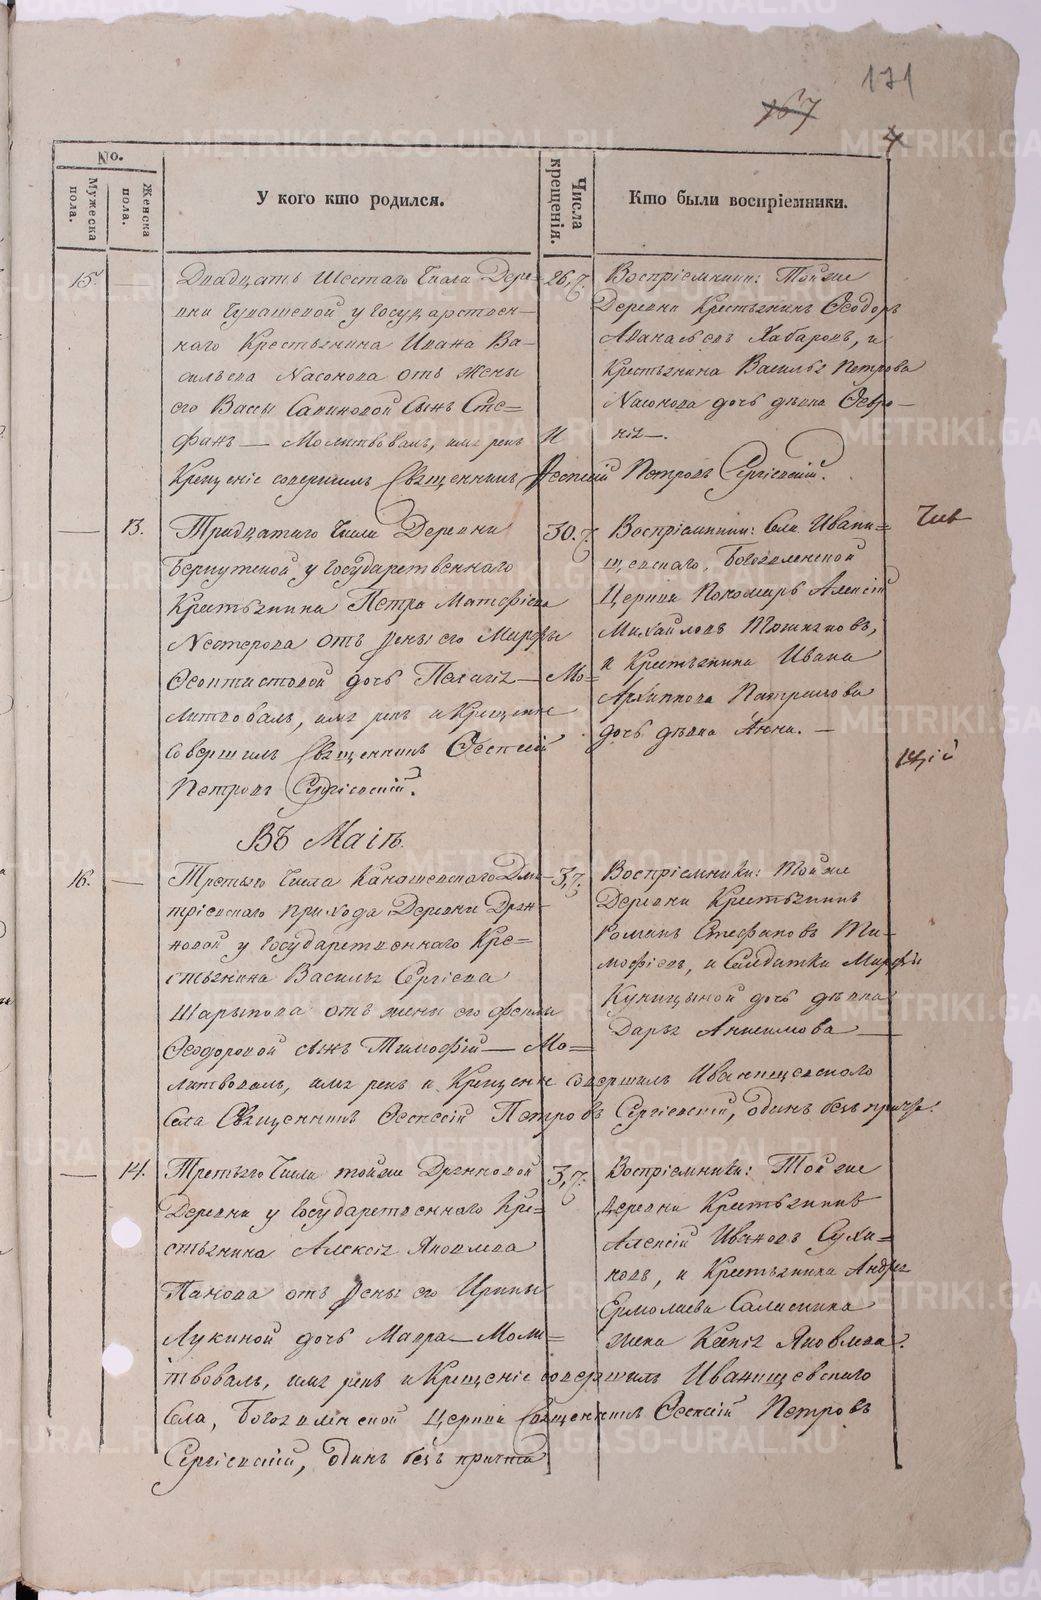 171
167
4
№.
Мужеска пола.
Женска пола.
У кого кто родился.
Числа крещенія.
Кто были воспріемники.
15.
Двадцать Шестаго Числа Дере=
вни Чупашевой у Государствен=
наго Крестьянина Ивана Ва=
сильева Насонова отъ жены
его Вассы Савиновой сынъ Сте=
фанъ — Молитвовалъ, имя рекъ И
Крещеніе совершилъ Священникъ Евсевій Петровъ Сергіевскій.
26,7.
Воспріемники: Тойже
Деревни Крестьянинъ Ѳеодоръ
Аѳанасьевъ Хабаровъ, и
Крестьянина Василья Петрова
Насонова дочь дѣвка Февро=
нія —.
13.
Тридцатаго Числа Деревни
у Государственнаго
Крестьянина Петра Матѳѣева
Нестерова отъ жены его Марѳы
Ѳеоктистовой дочь Пелагія — Мо=
литвовалъ, имя рекъ и Крещеніе
Совершилъ Священникъ Евсевій
Петровъ Сергіевскій.
30.7.
Воспріемники: Села Ивани=
щевскаго, Богоявленской
Церкви Пономарь Алексій
Михайловъ
и Крестьянина Ивана
Архиппова Патрашова
дочь дѣвка Анна. —
Въ Маіѣ.
16.
Третьяго Числа Канашевскаго Дми=
тріевскаго прихода Деревни Дрян=
новой у Государственнаго Кре=
стьянина Василья Сергіева
Шарыпова отъ жены его Феклы
Ѳеодоровой сынъ Тимофій — Мо=
литвовалъ, имя рекъ и Крещеніе совершилъ Иванищевскаго
Села Священникъ Евсевій Петровъ Сергіевскій, одинъ безъ причта.
3,7.
Воспріемники: Тойже
Деревни Крестьянинъ
Романъ Стефановъ Ти=
мофіевъ, и Солдатки Марфы
Куницыной дочь дѣвка
Дарья Анисимова —
14.
Третьяго Числа тойже Дрянновой
Деревни у Государственнаго Кре=
стьянина Алексія Яковлева
Панова отъ жены его Ирины
Лукиной дочь Мавра — Моли=
твовалъ, имя рекъ и Крещеніе совершилъ Иванищевскаго
Села, Богоявленской Церкви Священникъ Евсевій Петровъ
Сергіевскій, одинъ безъ причта
3,7.
Воспріемники: Тойже
деревни Крестьянинъ
Алексій Ивановъ Сухи=
новъ, и Крестьянина Андрея
Ермолаева
жена Ксенія Яковлева.
METRIKI.GASO-URAL.RU